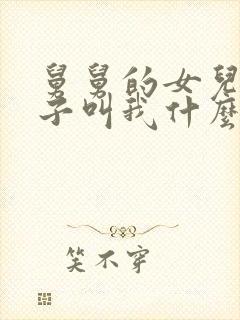 舅舅的女兒
子叫我什麼
笑不穿